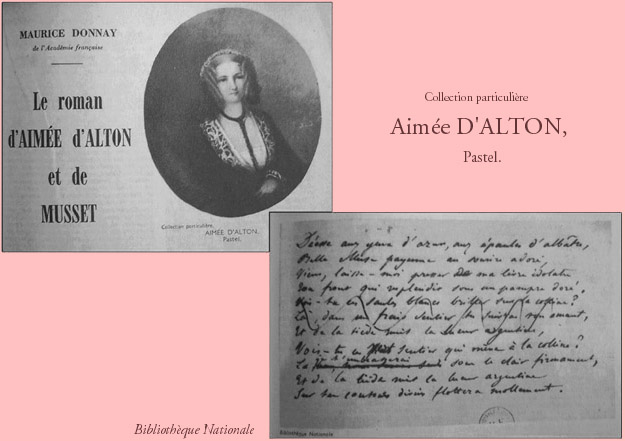 MAURICE DONNAY
de l'Académie française
Le roman
d'AIMÉE d'ALTON
et de
MUSSET
Collection particulière.
AIMÉE D'ALTON.
Pastel.
Collection particulière
Aimée D'ALTON,
Pastel.
Déesse aux yeux d'azur, aux épaules d'albâtre,
Belle Muse payenne au sourire adoré,
Viens, laisse-moi presser de ma lèvre idolâtre
Ton front qui resplendit sous un pampre doré.
Vois-tu les saules blancs briller sur la colline?
Là, dans un frais sentier tu
Et de la tiède nuit la lueur argentine,
Vois-tu ce sentier qui mène à la colline?
Là, t'embrasserai sous le clair firmament,
Et de la tiède nuit la lueur argentine
Sur tes contours divins flottera mollement.
Bibliothèque Nationale
Bibliothèque Nationale